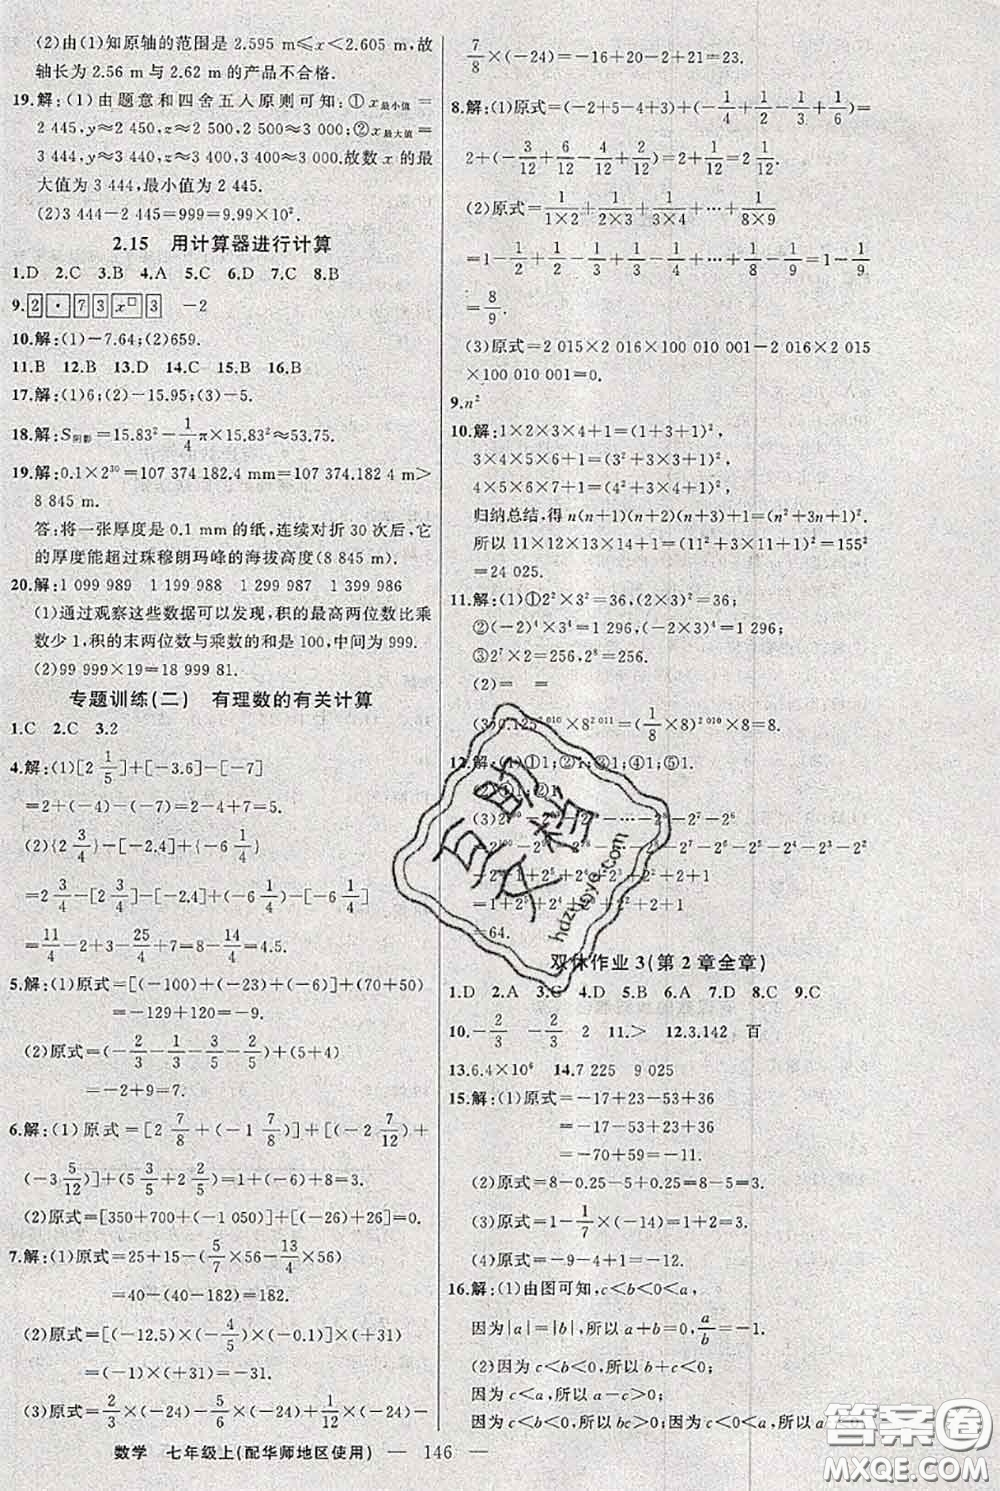 (2)由(1)知原轴的范围是 2.595 m≤x<2.605 m,故
轴长为 2.56 m 与 2.62 m 的产品不合格.
19.解:(1)由题意和四舍五入原则可知:①x最小值=
2 445,y≈2 450,x≈2 500,2 500≈3 000;②x最大值=
3 444,y≈3 440,x≈3 400,3 400≈3 000.故数 x 的最
大值为 3 444,最小值为 2 445.
(2)3 444-2 445=999=9.99×10².
2.15 用计算器进行计算
1.D 2.C 3.B 4.A 5.C 6.D 7.C 8.B
9. 2 · 7 3 x□ 3 -2
10.解:(1)-7.64;(2)659.
11.B 12.B 13.D 14.C 15.B 16.B
17.解:(1)6;(2)-15.95;(3)-5.
18.解:S阴影=15.83²-1/4π×15.83²≈53.75.
19.解:0.1×2³⁰=107 374 182.4 mm=107 374.182 4 m>
8 845 m.
答:将一张厚度是 0.1 mm 的纸,连续对折 30 次后,它
的厚度能超过珠穆朗玛峰的海拔高度(8 845 m).
20.解:1 099 989 1 199 988 1 299 987 1 399 986
(1)通过观察这些数据可以发现,积的最高两位数比乘
数少 1,积的末两位数与乘数的和是 100,中间为 999.
(2)99 999×19=18 999 81.
专题训练(二) 有理数的有关计算
1.C 2.C 3.2
4.解:(1)[2 1/5]+[-3.6]-[-7]
=2+(-4)-(-7)=2-4+7=5.
(2){2 3/4}-[-2.4]+{-6 1/4}
=2 3/4-[2 3/4]-[-2.4]+(-6 1/4)-[-6 1/4]=
11/4-2+3-25/4+7=8-14/4=4.5.
5.解:(1)原式=[(-50)+(-79)]+(70+50)
=-129+120=-9.
(2)原式=(-2/3-1/3-3/5-2/5)+(5+4)
=-2+9=7.
6.解:(1)原式=[2 7/8+(-1 7/8)]+[(-2 5/12)+
(-3 5/12)]+(5 3/5+2 2/5)=1+(-5 5/6)+8=3 1/6.
(2)原式=[350+700+(-1 050)]+[(-26)+26]=0.
7.解:(1)原式=25+15-(5/7×56-13/4×56)
=40-(40-182)=182.
(2)原式=[(-12.5)×(-4/5)×(-1/10)]×(+31)
=(-1)×(+31)=-31.
(3)原式=2/3×(-24)-5/6×(-24)+1/12×(-24)-
7/8×(-24)=-16+20-2+21=23.
8.解:(1)原式=(-2+5-4+3)+(-1/4+1/2+1/3+1/6)=
2+(-3/12+6/12+4/12+2/12)=2+1/... 
(2)原式=1/(1×2)+1/(2×3)+1/(3×4)+…+1/(8×9)
=1-1/2+1/2-1/3+1/3-1/4+…+1/8-1/9=1-1/9
=8/9.
(3)原式=2 015×2 016×100 010 001-2 016×2 015
×100 010 001=0.
9.n²
10.解:1×2×3×4+1=(1²+3×1+1)²,
3×4×5×6+1=(3²+3×3+1)²,
4×5×6×7+1=(4²+3×4+1)²,
归纳总结,得 n(n+1)(n+2)(n+3)+1=(n²+3n+1)².
所以 11×12×13×14+1=(11²+3×11+1)²=155²
=24 025.
11.解:(1)①2²×3²=36,(2×3)²=36;
②(-2)⁴×3⁴=1 296,(-2×3)⁴=1 296;
③2⁷×2=256,2⁸=256.
(2)= =
(3)0.125²⁰¹⁰×8²⁰¹¹=(1/8×8)²⁰¹⁰×8=8.
12.解:(1)①1;②1;③1;④1;⑤1.
(2)①1;②1.
-1+2⁵+2⁴+2³+2²+2+1
=64.
双休作业 3(第 2 章全章)
1.D 2.A 3.C 4.D 5.B 6.A 7.D 8.C 9.C
10.-2/3 -2/3 2 11.> 12.3.142 百
13.6.4×10⁶ 14.7 225 9 025
15.解:(1)原式=-17+23-53+36
=-17-53+23+36
=-70+59=-11.
(2)原式=8-0.25-5+0.25=3.
(3)原式=1-1/7×(3-9)=1+6/7=1 6/7.
(4)原式=-9-4+1=-12.
16.解:(1)由图可知,c<b<0<a,
因为|a|=|b|,所以 a+b=0,a/b=-1.
(2)因为 c<b<0,所以 b+c<0;
因为 c<a,所以 a-c>0;
因为 c<b<0,所以 bc>0;因为 c<0<a,所以
数学 七年级上(配华师地区使用) — 146 —
互助文档
hdzuoye.com
答案圈
MXQE.COM